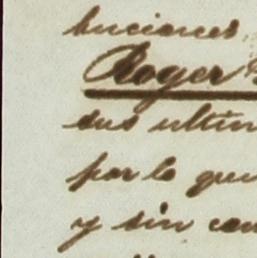 luciones,
Roger
sus ultim
por lo que
y sin con